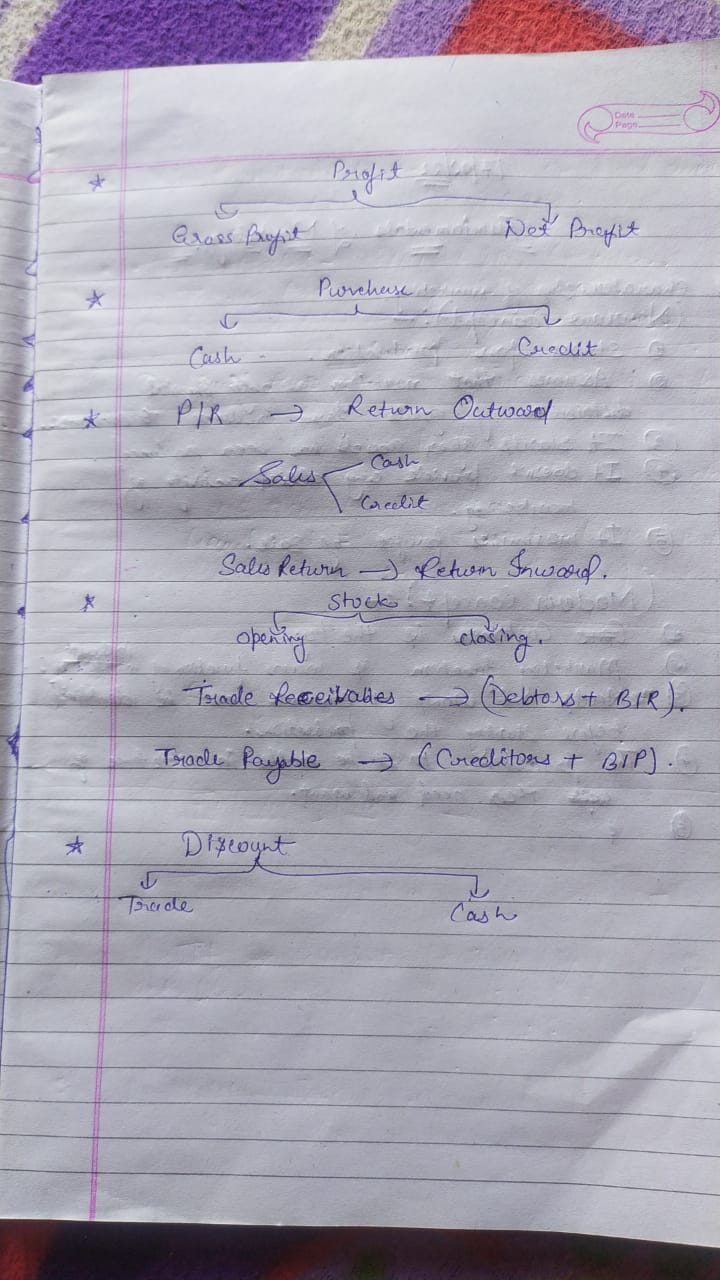 Date
Page
Profit
Gross Profit Net Profit
Purchase
Cash Credit
P/R → Return Outward
Sales Cash
Credit
Sales Return → Return Inward.
Stock
opening closing.
Trade Receivables → (Debtors + B/R).
Trade Payable → (Creditors + B/P).
Discount
Trade Cash